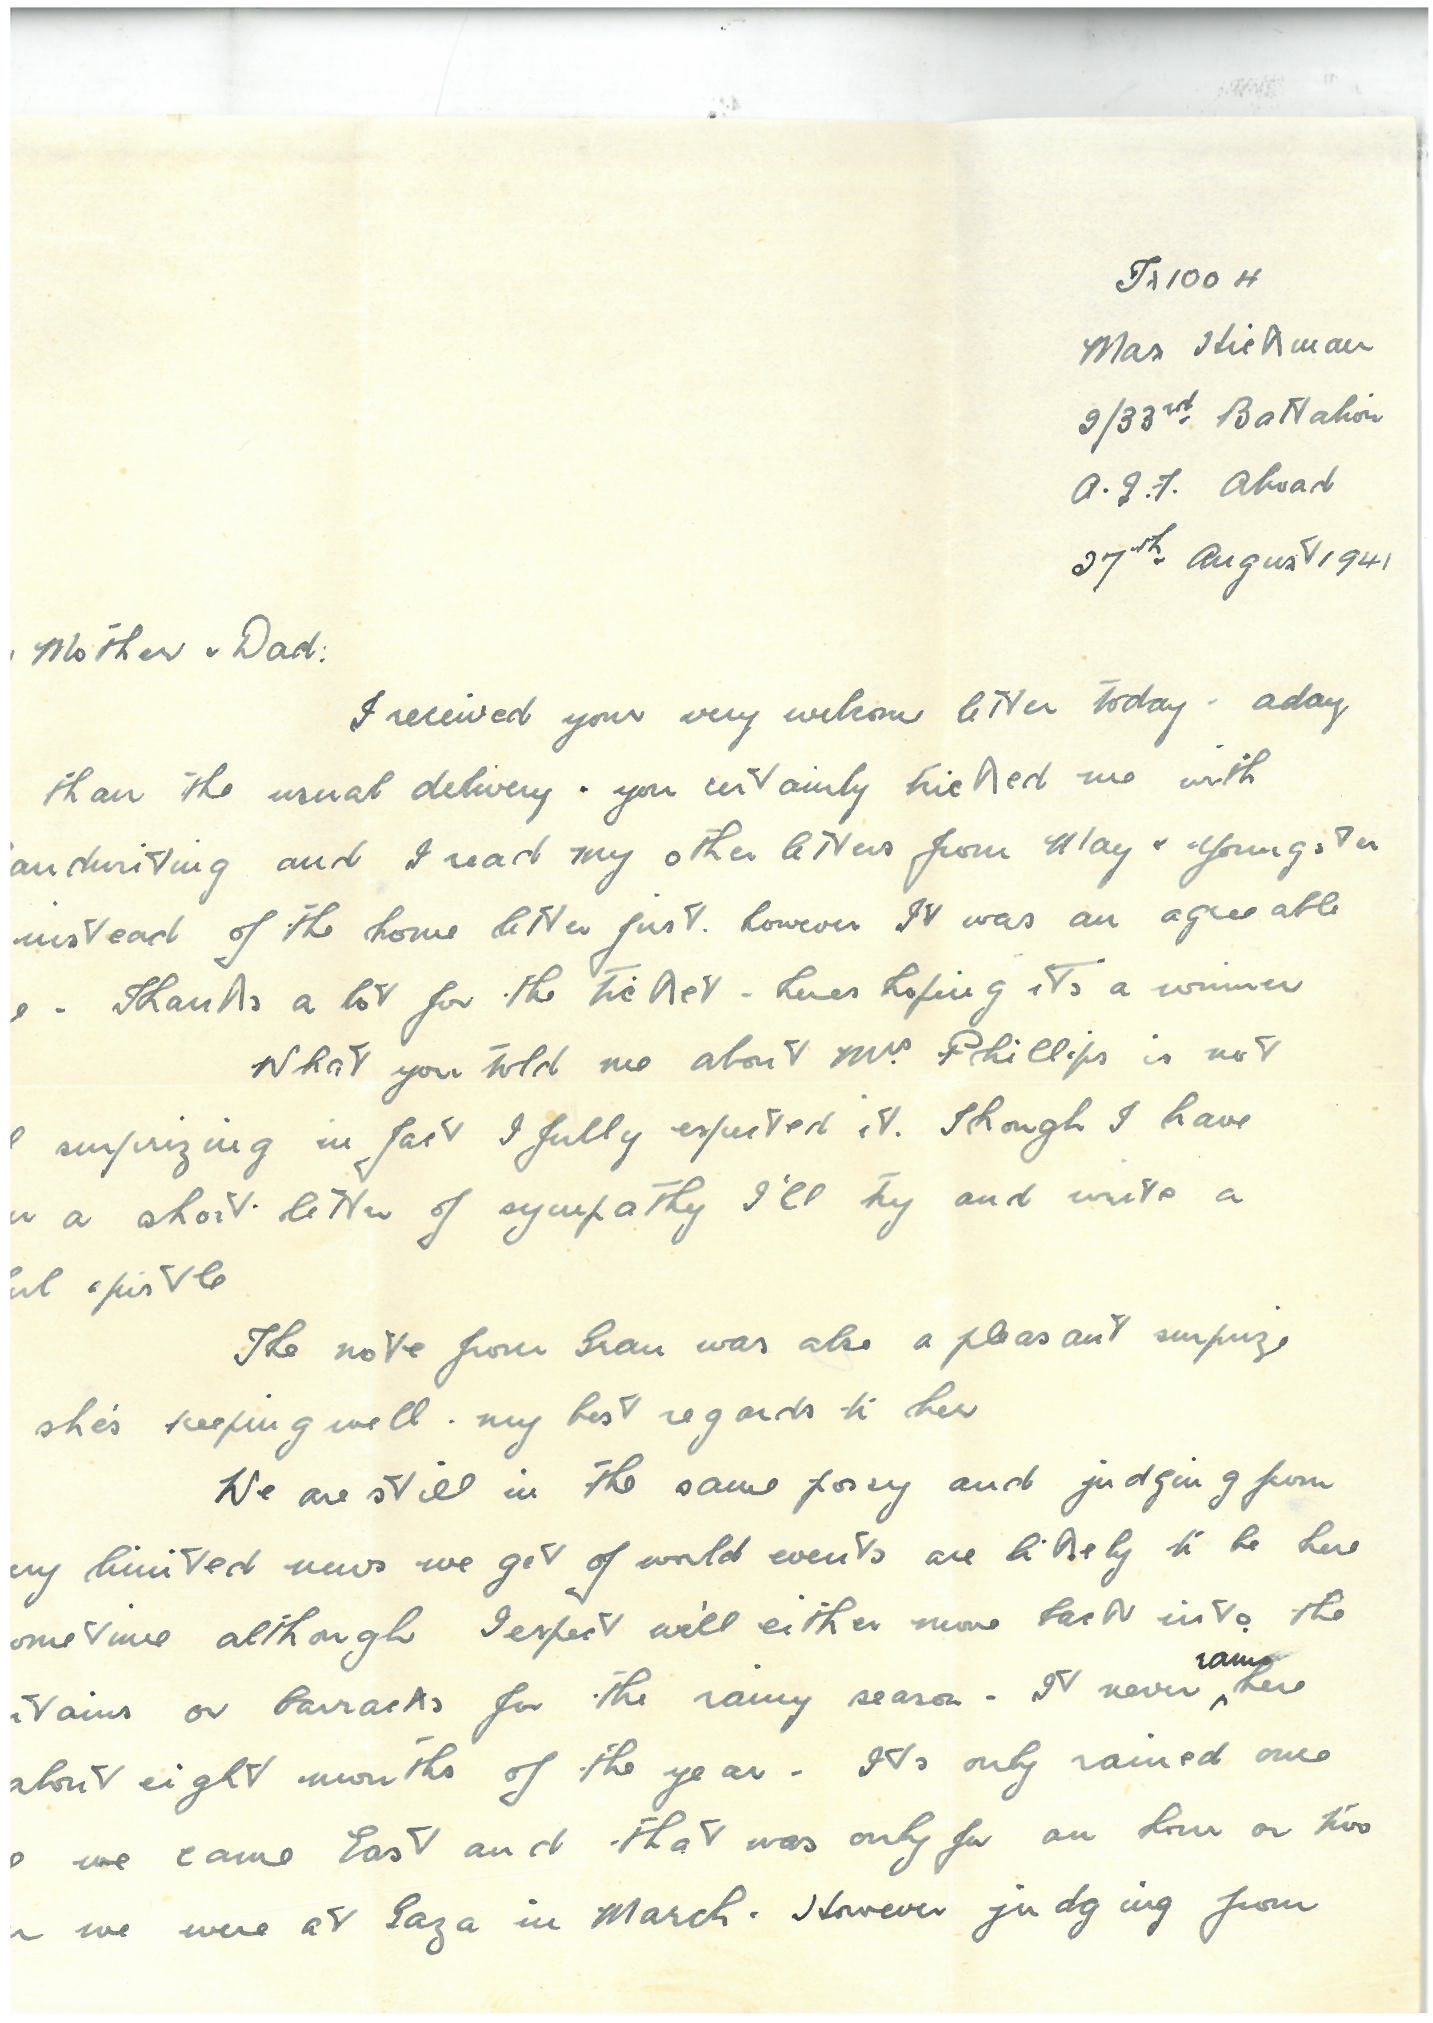 Tx1004
Max Hickman
2/33rd. Battalion
A.I.F. Abroad
27th. August 1941
Mother & Dad:
I received your very welcome letter today - aday
than the usual delivery. you certainly tricked me with
andwriting and I read my other letters from May & Youngster
instead of the home letter first. however It was an agreeable
e - Thanks a lot for the ticket - heres hoping its a winner
What you told me about Mrs. Phillips is not
l surprizing in fact I fully expected it. Though I have
n a short letter of sympathy I'll try and write a
ul epistle
The note from Gran was also a pleasant surprize
she's keeping well. my best regards to her
We are still in the same possy and judging from
ery limited news we get of world events are likely to be here
ometime although I expect we'll either move back into the
ntains or barracks for the rainy season - It never rains here
about eight months of the year - Its only rained once
e we came East and that was only for an hour or two
n we were at Gaza in March. However judging from